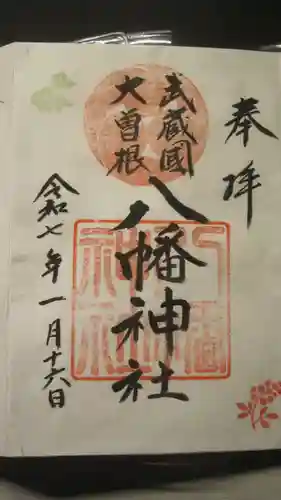 奉拝
武蔵國
大曽根
八幡神社
令和七年一月十六日